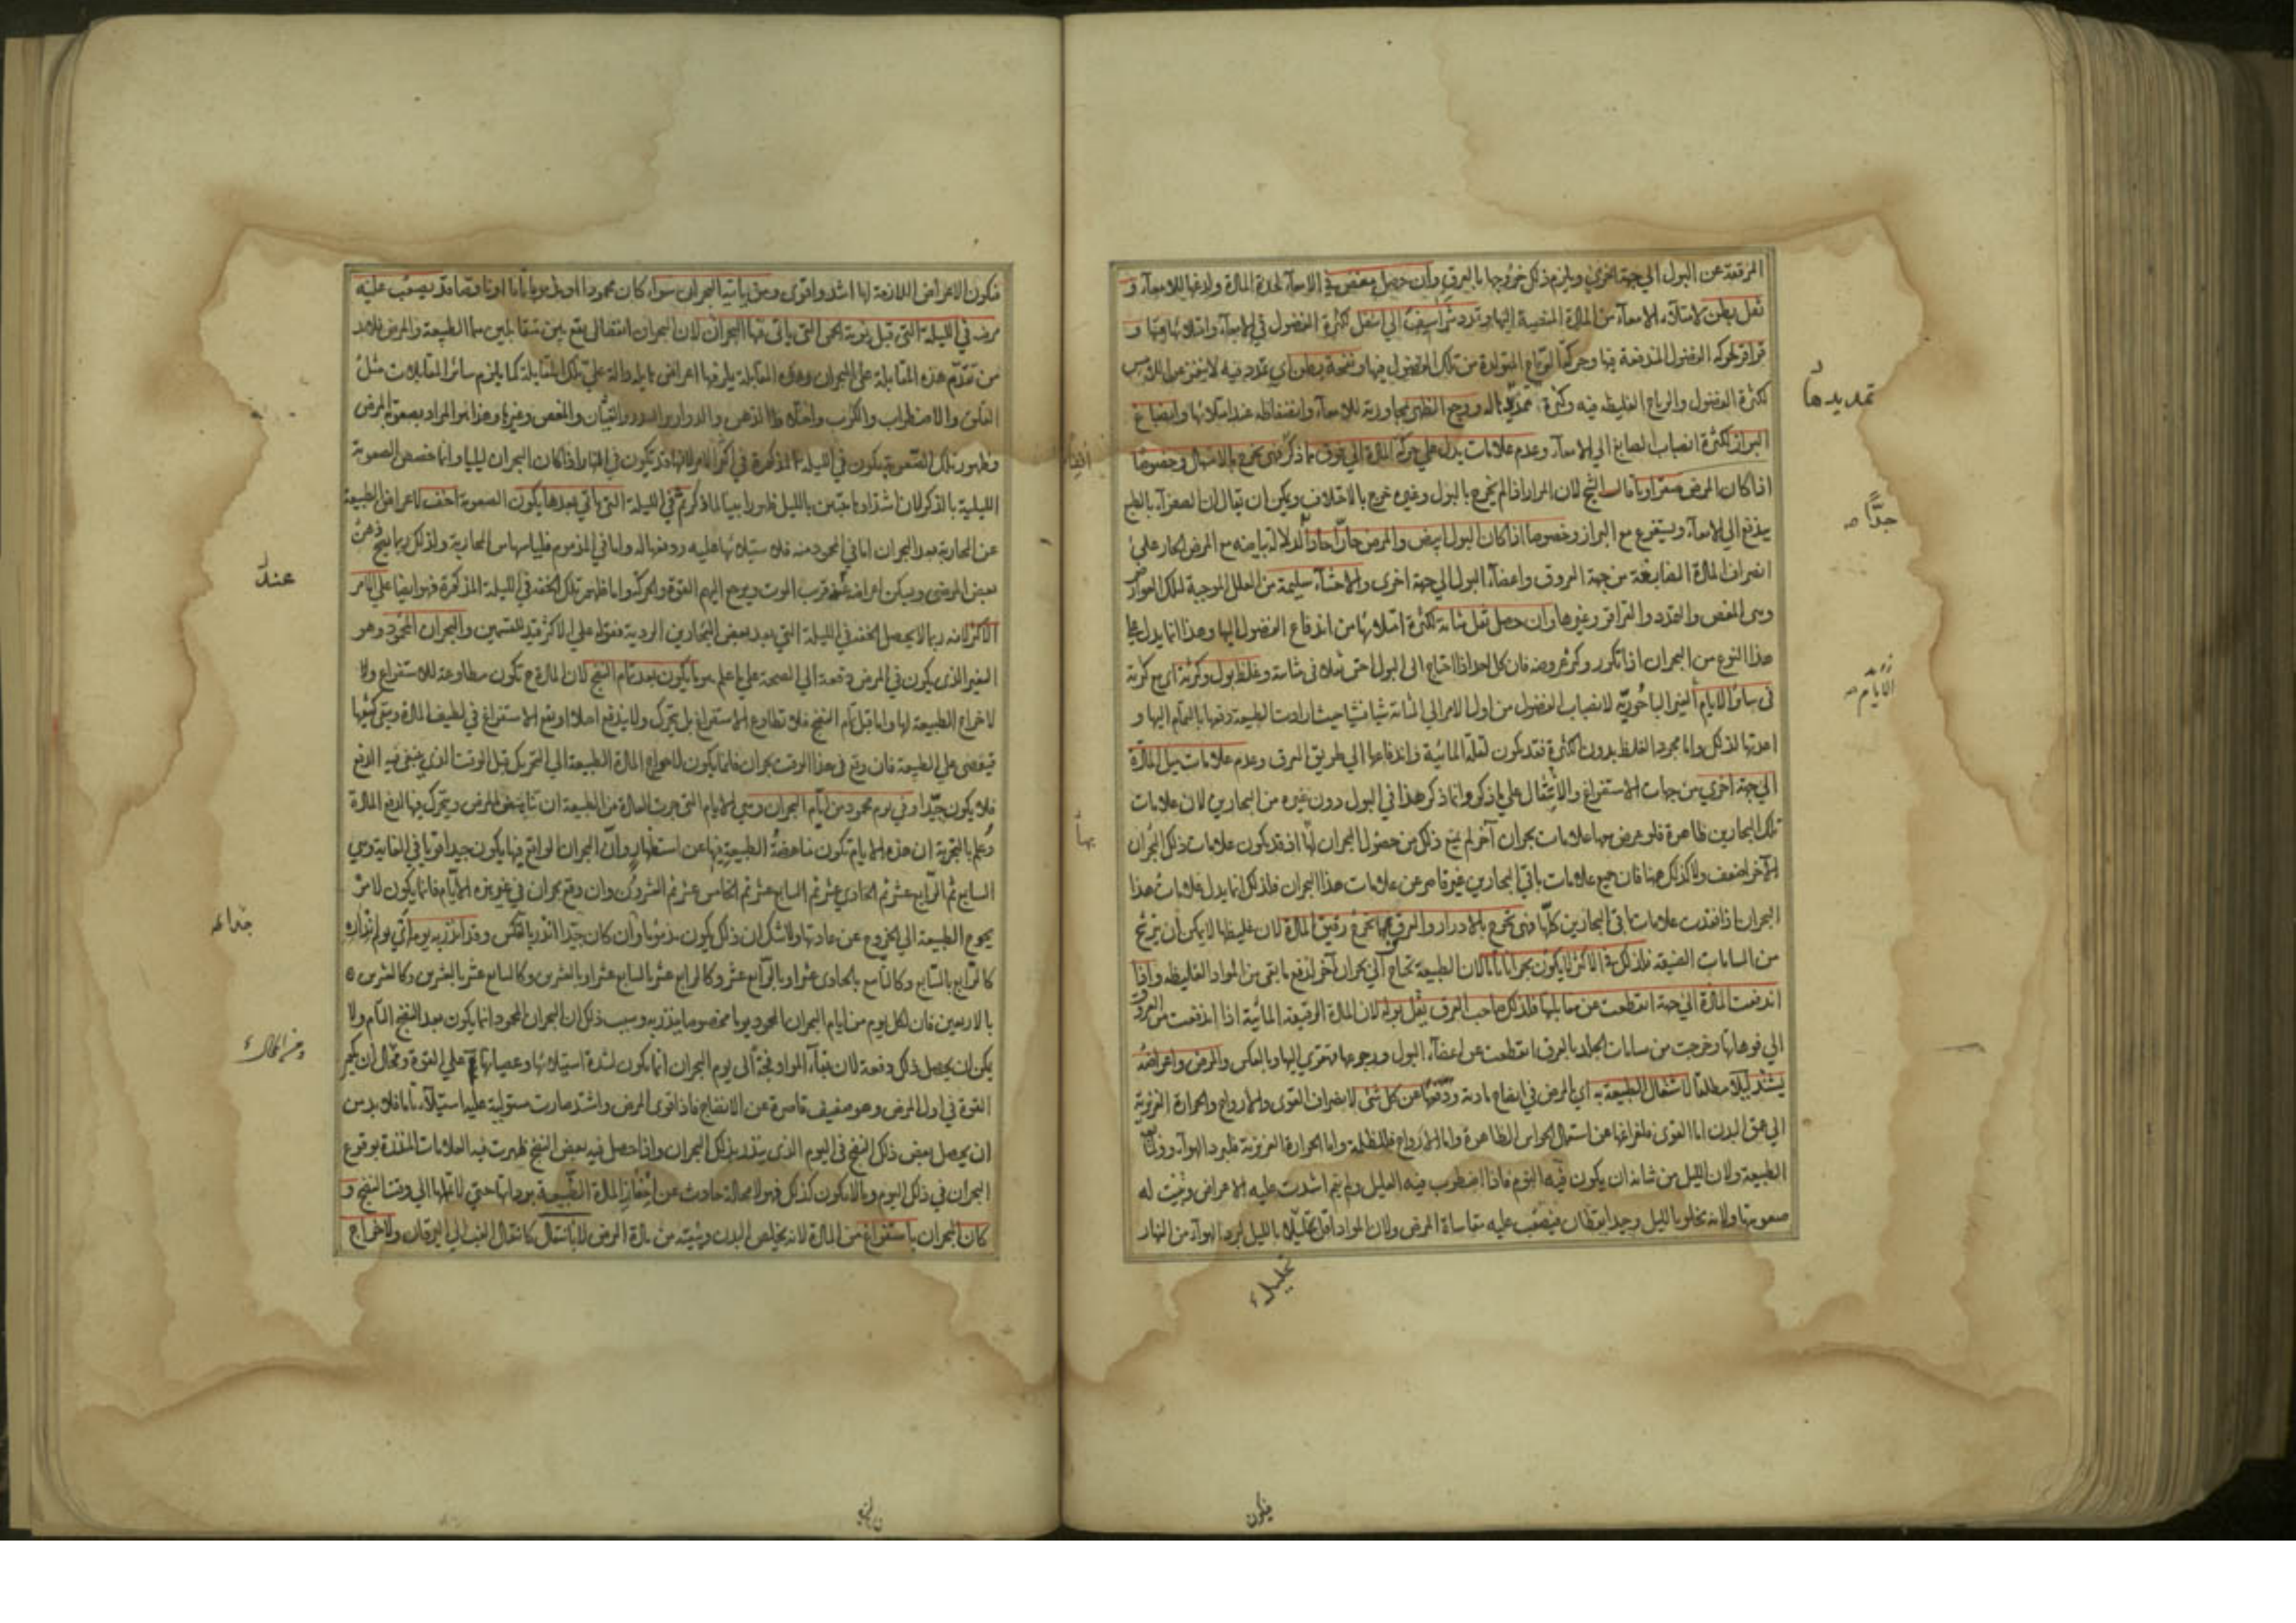 الرقيقة عن البول الى جهة اخرى ويلزم ذلك خروجها بالعرق وان حصل مغص في الامعاء لحدة المادة ولذعها للامعاء و
ثقل بطن لامتلاء الامعاء من المادة المنصبة اليها وتمدد شراسيف الى اسفل لكثرة الفضول في الامعاء وامتلائها منها و
قراقر لحركة الفضول المندفعة فيها وحركة الرياح المتولدة من تلك الفضول فيها ونفخة بطن اي تمدد فيه لا يغمز من اللمس
لكثرة الفضول والرياح الغليظة فيه وكثرة له ووجع الظهر لمجاورته للامعاء وانضغاطه عند امتلائها وانصباغ
البراز لكثرة انصباب الصابغ الى الامعاء وعدم علامات يدل على حركة المادة الى فوق مما ذكر فهي تخرج بالاسهال وخصوصا
اذا كان المرض صفراويا قال الشيخ لان المرار اذا لم يخرج بالبول وغيره خرج بالاختلاف ويمكن ان يقال لان الصفراء بالطبع
يندفع الى الامعاء ويستفرغ مع البراز وخصوصا اذا كان البول ابيض والمرض حارا حادا لدلالة بياضه مع المرض الحار على
انصراف المادة الصابغة من جهة العروق واعضاء البول الى جهة اخرى والاحشاء سليمة من العلل الموجبة لتلك العوارض
وهي المغص والتمدد والقراقر وغيرها وان حصل ثقل مثانة لكثرة امتلائها من اندفاع الفضول اليها وهذا انما يدل على
هذا النوع من البحران اذا تكرر وكثر عروضه فان كل احد اذا احتاج الى البول احس ثقلا في مثانته وغلظ بول وكثرته اي كثرته
في سائر الايام الغير الباحورية لانصباب الفضول من اول الامر الى المثانة شيئا فشيئا حيث ارادت الطبيعة دفعها بالتمام اليها و
اعدتها لذلك واما مجرد الغلظ بدون الكثرة فقد يكون لقلة المائية واندفاعها الى طريق العرق وعدم علامات ميل المادة
الى جهة اخرى من جهات الاستفراغ والانتقال على ما ذكر وانما ذكر هذا في البول دون غيره من البحارين لان علامات
تلك البحارين ظاهرة فلو عرض معها علامات بحران آخر لم يمنع ذلك من حصول البحران بها اذ قد يكون علامات ذلك البحران
الآخر اضعف ولا كذلك هنا فان جميع علامات باقي البحارين غير قاصر عن علامات هذا البحران فلذلك انما يدل علامات هذا
البحران اذا فقدت علامات باقي البحارين كلها فهي تخرج بالادرار والعرق بهما تخرج رقيق المادة لان غليظها لا يمكن ان يترشح
من المسامات الضيقة فلذلك في الاكثر لا يكون بحرانا تاما لان الطبيعة تحتاج الى بحران آخر لدفع ما بقي من المواد الغليظة واذا
اندفعت المادة الى جهة انقطعت عن مقابلها فلذلك صاحب العرق يقل بوله لان المادة الرقيقة المائية اذا اندفعت من العروق
الى فوهاتها وخرجت من مسامات الجلد بالعرق انقطعت عن اعضاء البول ورجوعها قهقرى اليها وبالعكس والمرض واعراضه
يشتد ليلا مطلقا لاشتغال الطبيعة به اي بالمرض في انضاج مادته ودفعها عن كل شئ لانصراف القوى والارواح والحرارة الغريزية
الى عمق البدن اما القوى فلفراغها عن استعمال الحواس الظاهرة واما الارواح فللظلمة واما الحرارة الغريزية فلبرد الهواء
الطبيعة ولان الليل من شانه ان يكون فيه النوم فاذا اضطرب فيه العليل ولم ينم اشتدت عليه الاعراض وتبينت له
صعوبتها ولانه يخلو بالليل وحيدا يقظان فيصعب عليه مقاساة المرض ولان المواد اقل تحليلا بالليل لبرد الهواء من النهار
تمديدها
جدا
الايام
تحليلا
فيكون
فيكون الاعراض اللازمة لها اشد واقوى ومن ياتيه البحران سواء كان محمودا او مذموما تاما او ناقصا قد يصعب عليه
مرضه في الليلة التي قبل نوبة الحمى التي ياتي فيها البحران لان البحران انتقالي يقع بين متقابلين هما الطبيعة والمرض فلابد
من تقدم هذه المقابلة على البحران وهذه المقابلة يلزمها اعراض هايلة دالة على تلك المقابلة كما يلزم سائر المقابلات مثل
القلق والاضطراب والكرب واختلاط الذهن والدوار والسدر والغثيان والمغص وغيرها وهذا هو المراد بصعوبة المرض
وظهور تلك الصعوبة يكون في الليلة المذكورة في اكثر الامر لانها قد يكون في النهار اذا كان البحران ليليا وانما خصص الصعوبة
الليلية بالذكر لان اشتدادها تبين بالليل ظهورا بينا لما ذكر ثم في الليلة التي ياتي بعدها يكون الصعوبة اخف لاعراض الطبيعة
عن المحاربة بعد البحران اما في المحمود منه فلاستيلائها عليه ودفعها له واما في المذموم فلياسها من المحاربة ولذلك ربما يصح ذهن
بعض المرضى ويسكن اعراضه قرب الموت ويرجع اليهم القوة والحركة واما ظهور تلك الخفة في الليلة المذكورة فهو ايضا على الامر
الاكثر لانه ربما لا يحصل الخفة في الليلة التي بعد بعض البحارين الردية فقوله على الاكثر قيد للقسمين والبحران المحمود وهو
التغير الذي يكون في المرض دفعة الى الصحة على ما علم هو ما يكون بعد تمام النضج لان المادة ح تكون مطاوعة للاستفراغ ولا
لاخراج الطبيعة لها واما قبل تمام النضج فلا تطاوع الاستفراغ بل يتحرك ولا يندفع اصلا او يقع الاستفراغ في لطيف المادة ويبقى كثيفها
فيعصى على الطبيعة فان وقع في هذا الوقت بحران فانما يكون لاحواج المادة الطبيعة الى التحريك قبل الوقت الذي ينبغي فيه الدفع
فلا يكون جيدا وفي يوم محمود من ايام البحران وهي الايام التي جرت العادة من الطبيعة ان تناهض المرض ويتحرك فيها لدفع المادة
وعلم بالتجربة ان هذه الايام تكون مناهضة الطبيعة فيها عن استظهار وان البحران الواقع فيها يكون جيدا قويا في الغاية وهي
السابع ثم الرابع عشر ثم الحادي عشر ثم السابع عشر ثم الخامس عشر ثم العشرون وان وقع بحران في غير هذه الايام فانما يكون لامر
يحوج الطبيعة الى الخروج عن عادتها ولا شك ان ذلك يكون مذموما وان كان جيدا انذر بالنكس وقد انذر به يوم اتى يوم انذاره
كالرابع بالسابع وكالتاسع بالحادي عشر او بالرابع عشر وكالرابع عشر بالسابع عشر او بالعشرين وكالسابع عشر بالعشرين وكالعشرين
بالاربعين فان لكل يوم من ايام البحران المحمود يوما مخصوصا ينذر به وسبب ذلك ان البحران المحمود انما يكون بعد النضج التام ولا
يمكن ان يحصل ذلك دفعة لان بقاء المواد فجة الى يوم البحران انما يكون لشدة استيلائها وعصيانها على القوة ومحال ان يكون
القوة في اول المرض وهو ضعيف قاصرة عن الانضاج فاذا قوى المرض واشتد صارت مستولية عليها استيلاء تاما فلابد من
ان يحصل بعض ذلك النضج في اليوم الذي ينذر بذلك البحران واذا حصل فيه بعض النضج ظهرت فيه العلامات المنذرة بوقوع
البحران في ذلك اليوم والا يكون كذلك فهو لا محالة حادث عن احفاز المادة الطبيعة برداءتها حتى لا تمهلها الى وقت النضج و
كان البحران باستفراغ من المادة لانه يخلص البدن وينقيه من مادة المرض لا بانتقال كانتقال الغب الى اليرقان والاخراج
عند